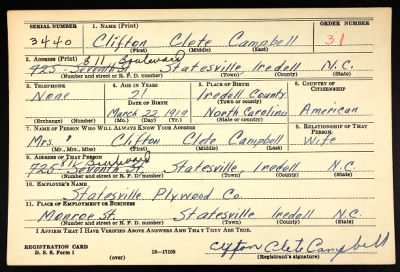 SERIAL NUMBER 1. NAME (Print) ORDER NUMBER
3440 Clifton Clete Campbell 31
(First) (Middle) (Last)
2. ADDRESS (Print) 811 Boulevard
725 - Seventh St. Statesville Iredell N.C.
(Number and street or R. F. D. number) (Town) (County) (State)
3. TELEPHONE 4. AGE IN YEARS 5. PLACE OF BIRTH 6. COUNTRY OF CITIZENSHIP
None 21 Iredell County
DATE OF BIRTH (Town or county)
March 22 1919 North Carolina American
(Exchange) (Number) (Mo.) (Day) (Yr.) (State or country)
7. NAME OF PERSON WHO WILL ALWAYS KNOW YOUR ADDRESS 8. RELATIONSHIP OF THAT PERSON
Mrs. Clifton Clete Campbell Wife
(Mr., Mrs., Miss) (First) (Middle) (Last)
9. ADDRESS OF THAT PERSON 811 Boulevard
725 - Seventh St. Statesville Iredell N.C.
(Number and street or R. F. D. number) (Town) (County) (State)
10. EMPLOYER'S NAME
Statesville Plywood Co.
11. PLACE OF EMPLOYMENT OR BUSINESS
Monroe St. Statesville Iredell N.C.
(Number and street or R. F. D. number) (Town) (County) (State)
I AFFIRM THAT I HAVE VERIFIED ABOVE ANSWERS AND THAT THEY ARE TRUE.
REGISTRATION CARD
D. S. S. Form 1 16—17105 Clifton Clete Campbell
(over) (Registrant's signature)